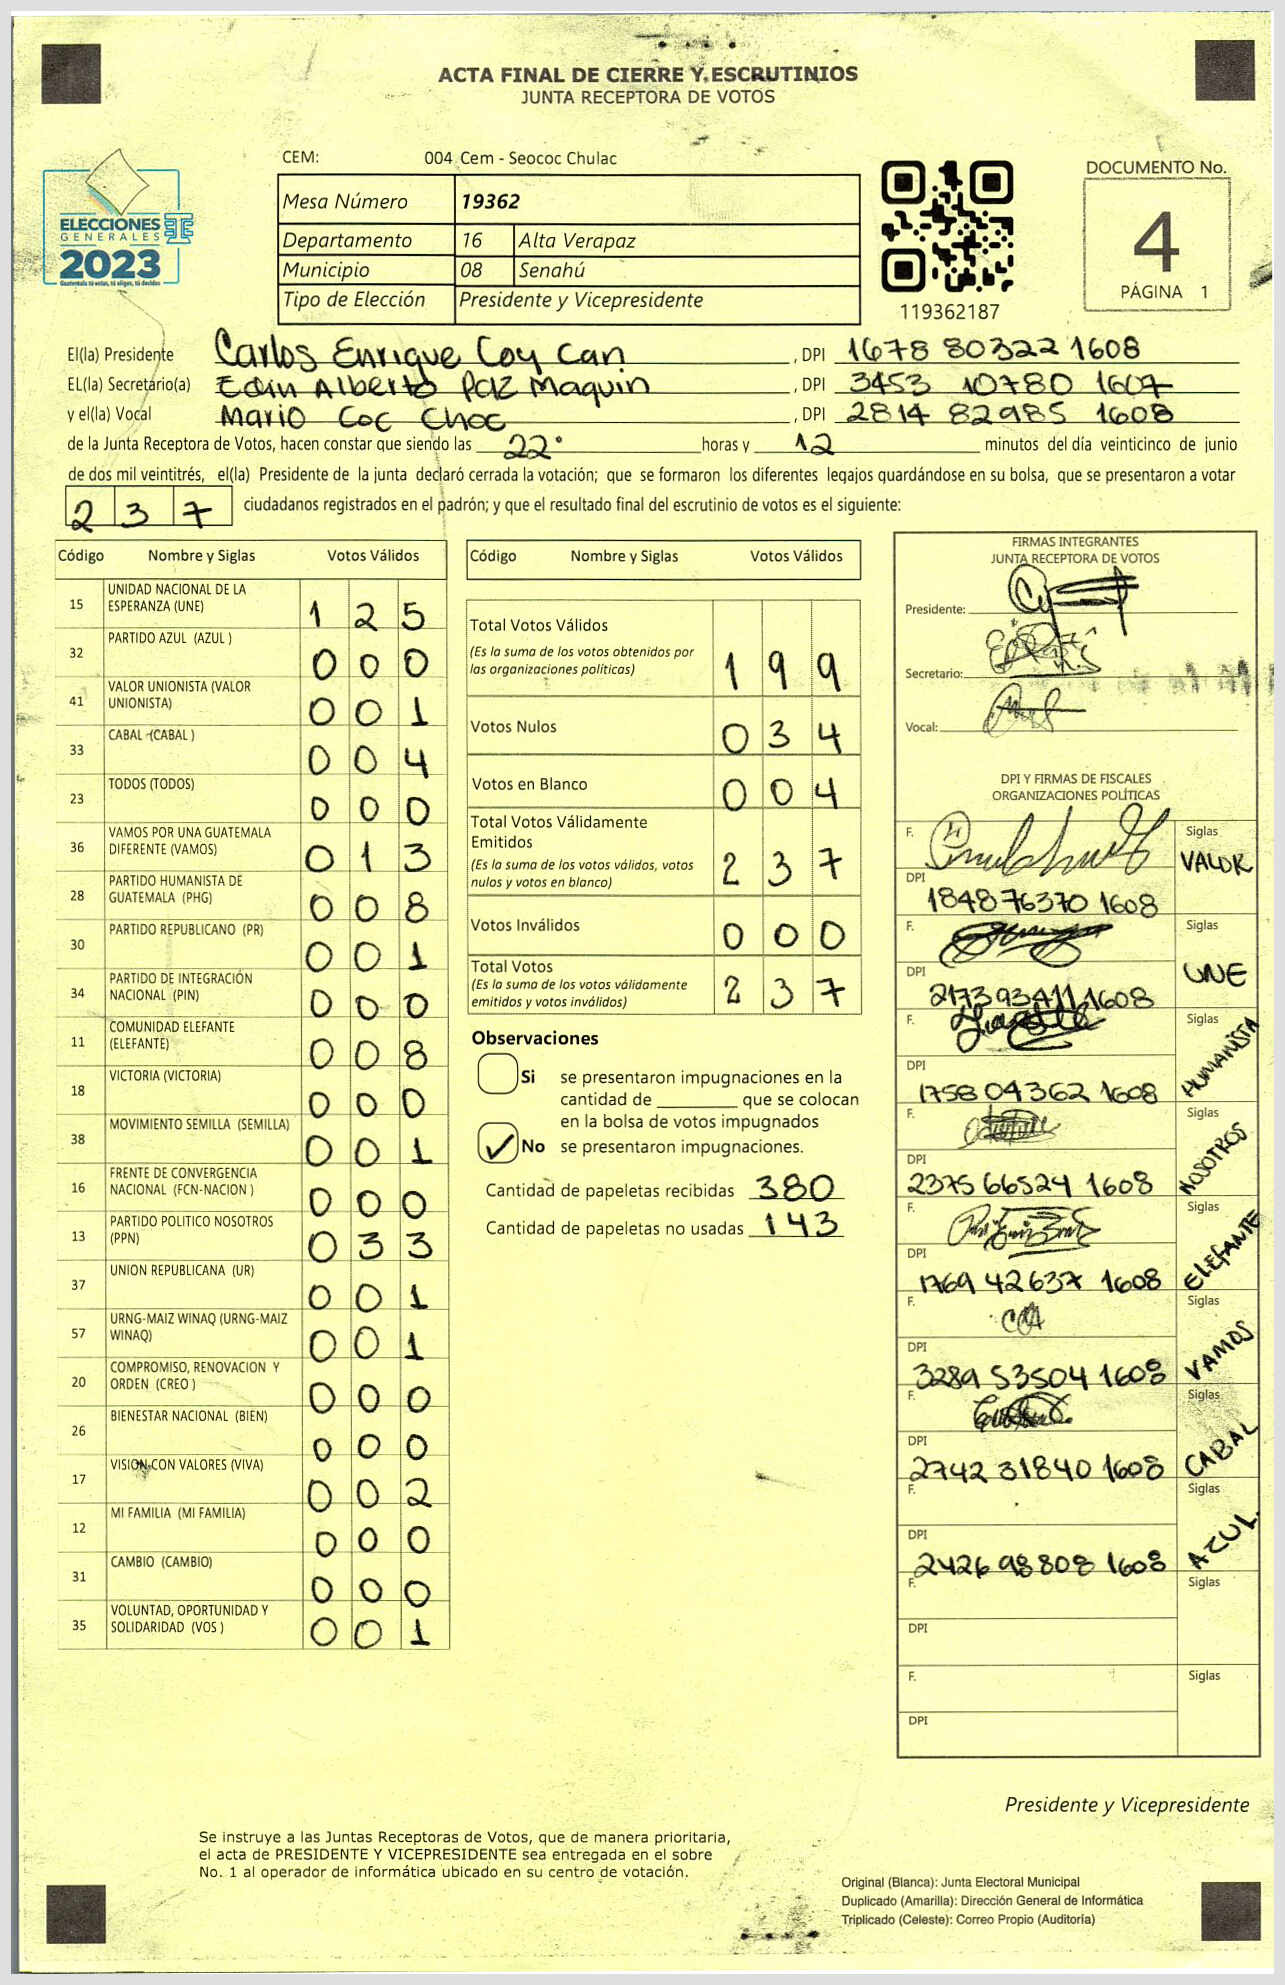 ACTA FINAL DE CIERRE Y ESCRUTINIOS
JUNTA RECEPTORA DE VOTOS
CEM: 004 Cem - Seococ Chulac
ELECCIONES
GENERALES
2023
Guatemala tú votas, tú eliges, tú decides
Mesa Número 19362
Departamento 16 Alta Verapaz
Municipio 08 Senahú
Tipo de Elección Presidente y Vicepresidente
119362187
DOCUMENTO No.
4
PÁGINA 1
El(la) Presidente Carlos Enrique Coy Can, DPI 1678 80322 1608
EL(la) Secretario(a) Edin Alberto Paz Maquin, DPI 3453 10780 1607
y el(la) Vocal Mario Coc Choc, DPI 2814 82985 1608
de la Junta Receptora de Votos, hacen constar que siendo las 22° horas y 12 minutos del día veinticinco de junio
de dos mil veintitrés, el(la) Presidente de la junta declaró cerrada la votación; que se formaron los diferentes legajos guardándose en su bolsa, que se presentaron a votar
237 ciudadanos registrados en el padrón; y que el resultado final del escrutinio de votos es el siguiente:
Código Nombre y Siglas Votos Válidos
15 UNIDAD NACIONAL DE LA ESPERANZA (UNE) 125
32 PARTIDO AZUL (AZUL ) 000
41 VALOR UNIONISTA (VALOR UNIONISTA) 001
33 CABAL (CABAL ) 004
23 TODOS (TODOS) 000
36 VAMOS POR UNA GUATEMALA DIFERENTE (VAMOS) 013
28 PARTIDO HUMANISTA DE GUATEMALA (PHG) 008
30 PARTIDO REPUBLICANO (PR) 001
34 PARTIDO DE INTEGRACIÓN NACIONAL (PIN) 000
11 COMUNIDAD ELEFANTE (ELEFANTE) 008
18 VICTORIA (VICTORIA) 000
38 MOVIMIENTO SEMILLA (SEMILLA) 001
16 FRENTE DE CONVERGENCIA NACIONAL (FCN-NACION ) 000
13 PARTIDO POLITICO NOSOTROS (PPN) 033
37 UNION REPUBLICANA (UR) 001
57 URNG-MAIZ WINAQ (URNG-MAIZ WINAQ) 001
20 COMPROMISO, RENOVACION Y ORDEN (CREO ) 000
26 BIENESTAR NACIONAL (BIEN) 000
17 VISION CON VALORES (VIVA) 002
12 MI FAMILIA (MI FAMILIA) 000
31 CAMBIO (CAMBIO) 000
35 VOLUNTAD, OPORTUNIDAD Y SOLIDARIDAD (VOS ) 001
Código Nombre y Siglas Votos Válidos
Total Votos Válidos 199
(Es la suma de los votos obtenidos por
las organizaciones políticas)
Votos Nulos 034
Votos en Blanco 004
Total Votos Válidamente
Emitidos 237
(Es la suma de los votos válidos, votos
nulos y votos en blanco)
Votos Inválidos 000
Total Votos 237
(Es la suma de los votos válidamente
emitidos y votos inválidos)
Observaciones
Si se presentaron impugnaciones en la
cantidad de ________ que se colocan
en la bolsa de votos impugnados
No se presentaron impugnaciones.
Cantidad de papeletas recibidas 380
Cantidad de papeletas no usadas 143
FIRMAS INTEGRANTES
JUNTA RECEPTORA DE VOTOS
Presidente:
Secretario:
Vocal:
DPI Y FIRMAS DE FISCALES
ORGANIZACIONES POLÍTICAS
F. Siglas VALOR
DPI 1848 76370 1608
F. Siglas UNE
DPI 2173 93411 1608
F. Siglas HUMANISTA
DPI 1758 04362 1608
F. Siglas NOSOTROS
DPI 2375 66524 1608
F. Siglas ELEFANTE
DPI 1769 42637 1608
F. Siglas VAMOS
DPI 3289 53504 1608
F. Siglas CABAL
DPI 2742 31840 1608
F. Siglas AZUL.
DPI 2426 98808 1608
F. Siglas
DPI
F. Siglas
DPI
Presidente y Vicepresidente
Se instruye a las Juntas Receptoras de Votos, que de manera prioritaria,
el acta de PRESIDENTE Y VICEPRESIDENTE sea entregada en el sobre
No. 1 al operador de informática ubicado en su centro de votación.
Original (Blanca): Junta Electoral Municipal
Duplicado (Amarilla): Dirección General de Informática
Triplicado (Celeste): Correo Propio (Auditoría)